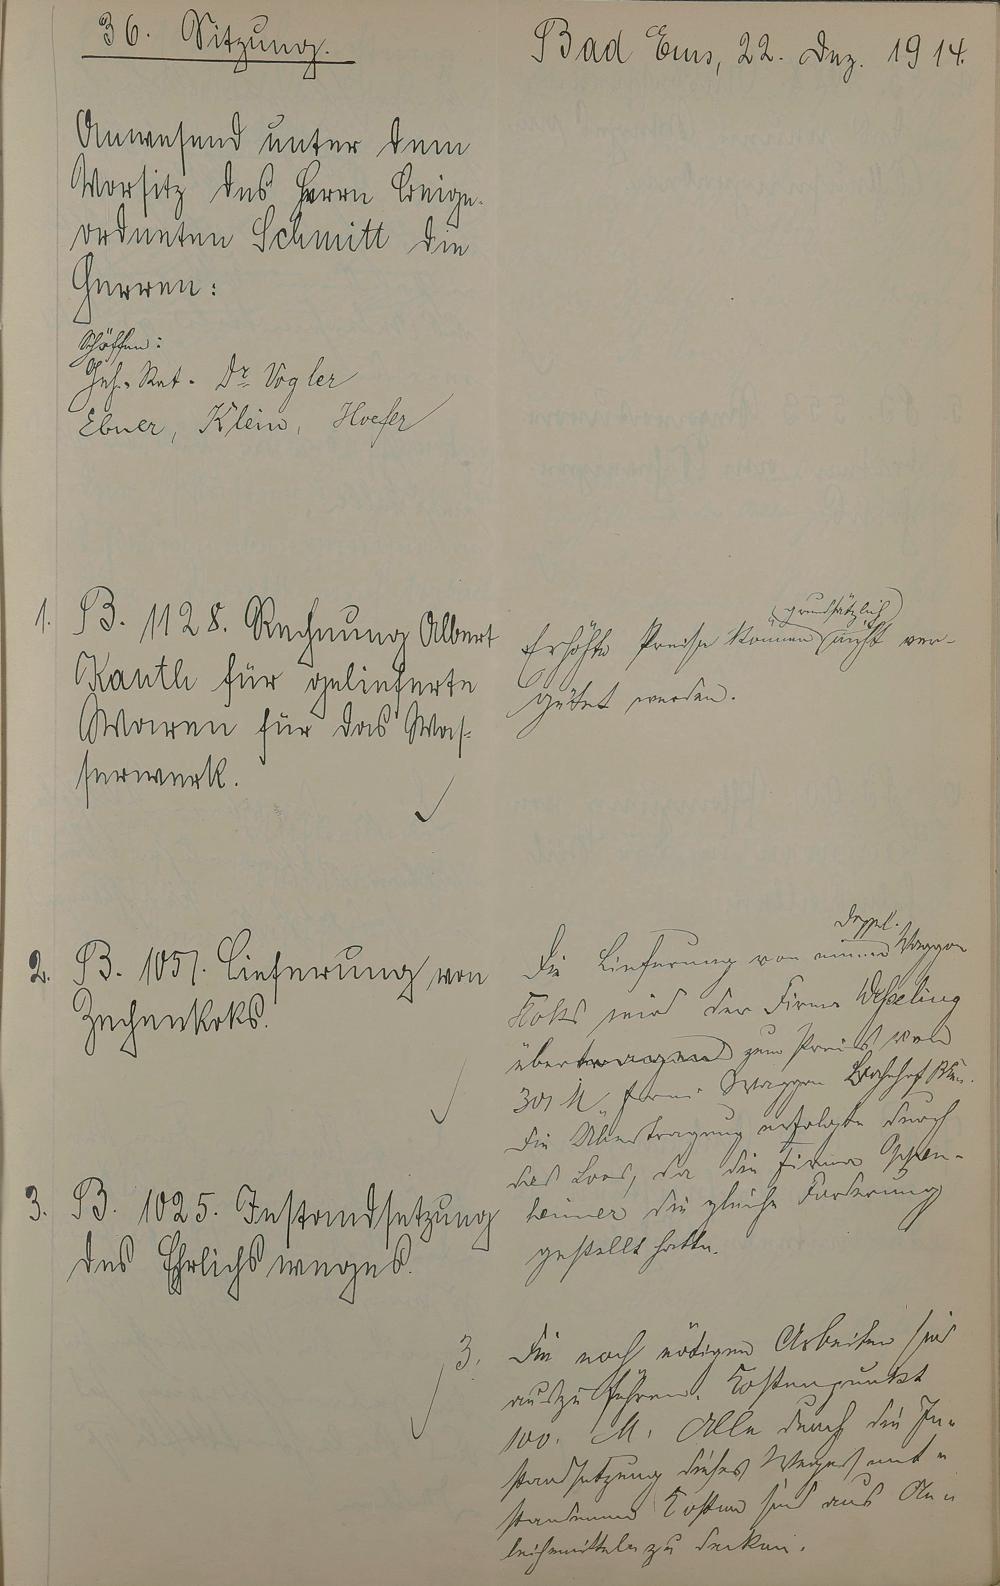 36. Sitzung.
Bad Ems, 22. Dez. 1914.
Anwesend unter dem
Vorsitz des Herrn Beige-
ordneten Schmitt die
Herren:
Schöffen:
Geh. Rat. Dr Vogler
Ebner, Klein, Hoefer
1. B. 1128. Rechnung Albert
Kauth für gelieferte
Waren für das Was-
serwerk.
grundsätzlich
Erhöhte Preise können nicht ver-
gütet werden.
2. B. 1057. Lieferung von
Zechenkoks.
Doppel.
Die Lieferung von einem Waggon
Koks wird der Firma Wesseling
übertragen zum Preis von
301 M Waggon Bahnhof
Die Übertragung erfolgte durch
das Loos, da die Firma Oppen-
heimer die gleiche Forderung
gestellt hatte.
3. B. 1025. Instandsetzung
des Ehrlichsweges.
3. Die noch nötigen Arbeiten sind
auszuführen. Kostenpunkt
100. M. Alle durch die In-
standsetzung dieses Weges ent-
standenen Kosten sind aus An-
leihemitteln zu decken.